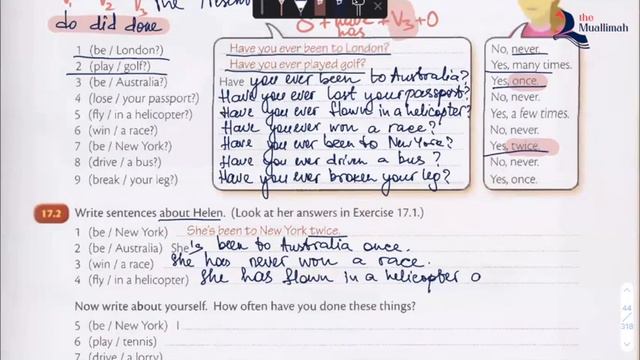 V₁ V₂ V₃ The Present
do did done
S + have + V₃ + O
has
the Muallimah
1 (be / London?) Have you ever been to London? No, never.
2 (play / golf?) Have you ever played golf? Yes, many times.
3 (be / Australia?) Have you ever been to Australia? Yes, once.
4 (lose / your passport?) Have you ever lost your passport? No, never.
5 (fly / in a helicopter?) Have you ever flown in a helicopter? Yes, a few times.
6 (win / a race?) Have you ever won a race? No, never.
7 (be / New York?) Have you ever been to New York? Yes, twice.
8 (drive / a bus?) Have you ever driven a bus? No, never.
9 (break / your leg?) Have you ever broken your leg? Yes, once.
17.2 Write sentences about Helen. (Look at her answers in Exercise 17.1.)
1 (be / New York) She's been to New York twice.
2 (be / Australia) She 's been to Australia once.
3 (win / a race) She has never won a race.
4 (fly / in a helicopter) She has flown in a helicopter a
Now write about yourself. How often have you done these things?
5 (be / New York) I
6 (play / tennis)
7 (drive / a lorry)
44
318